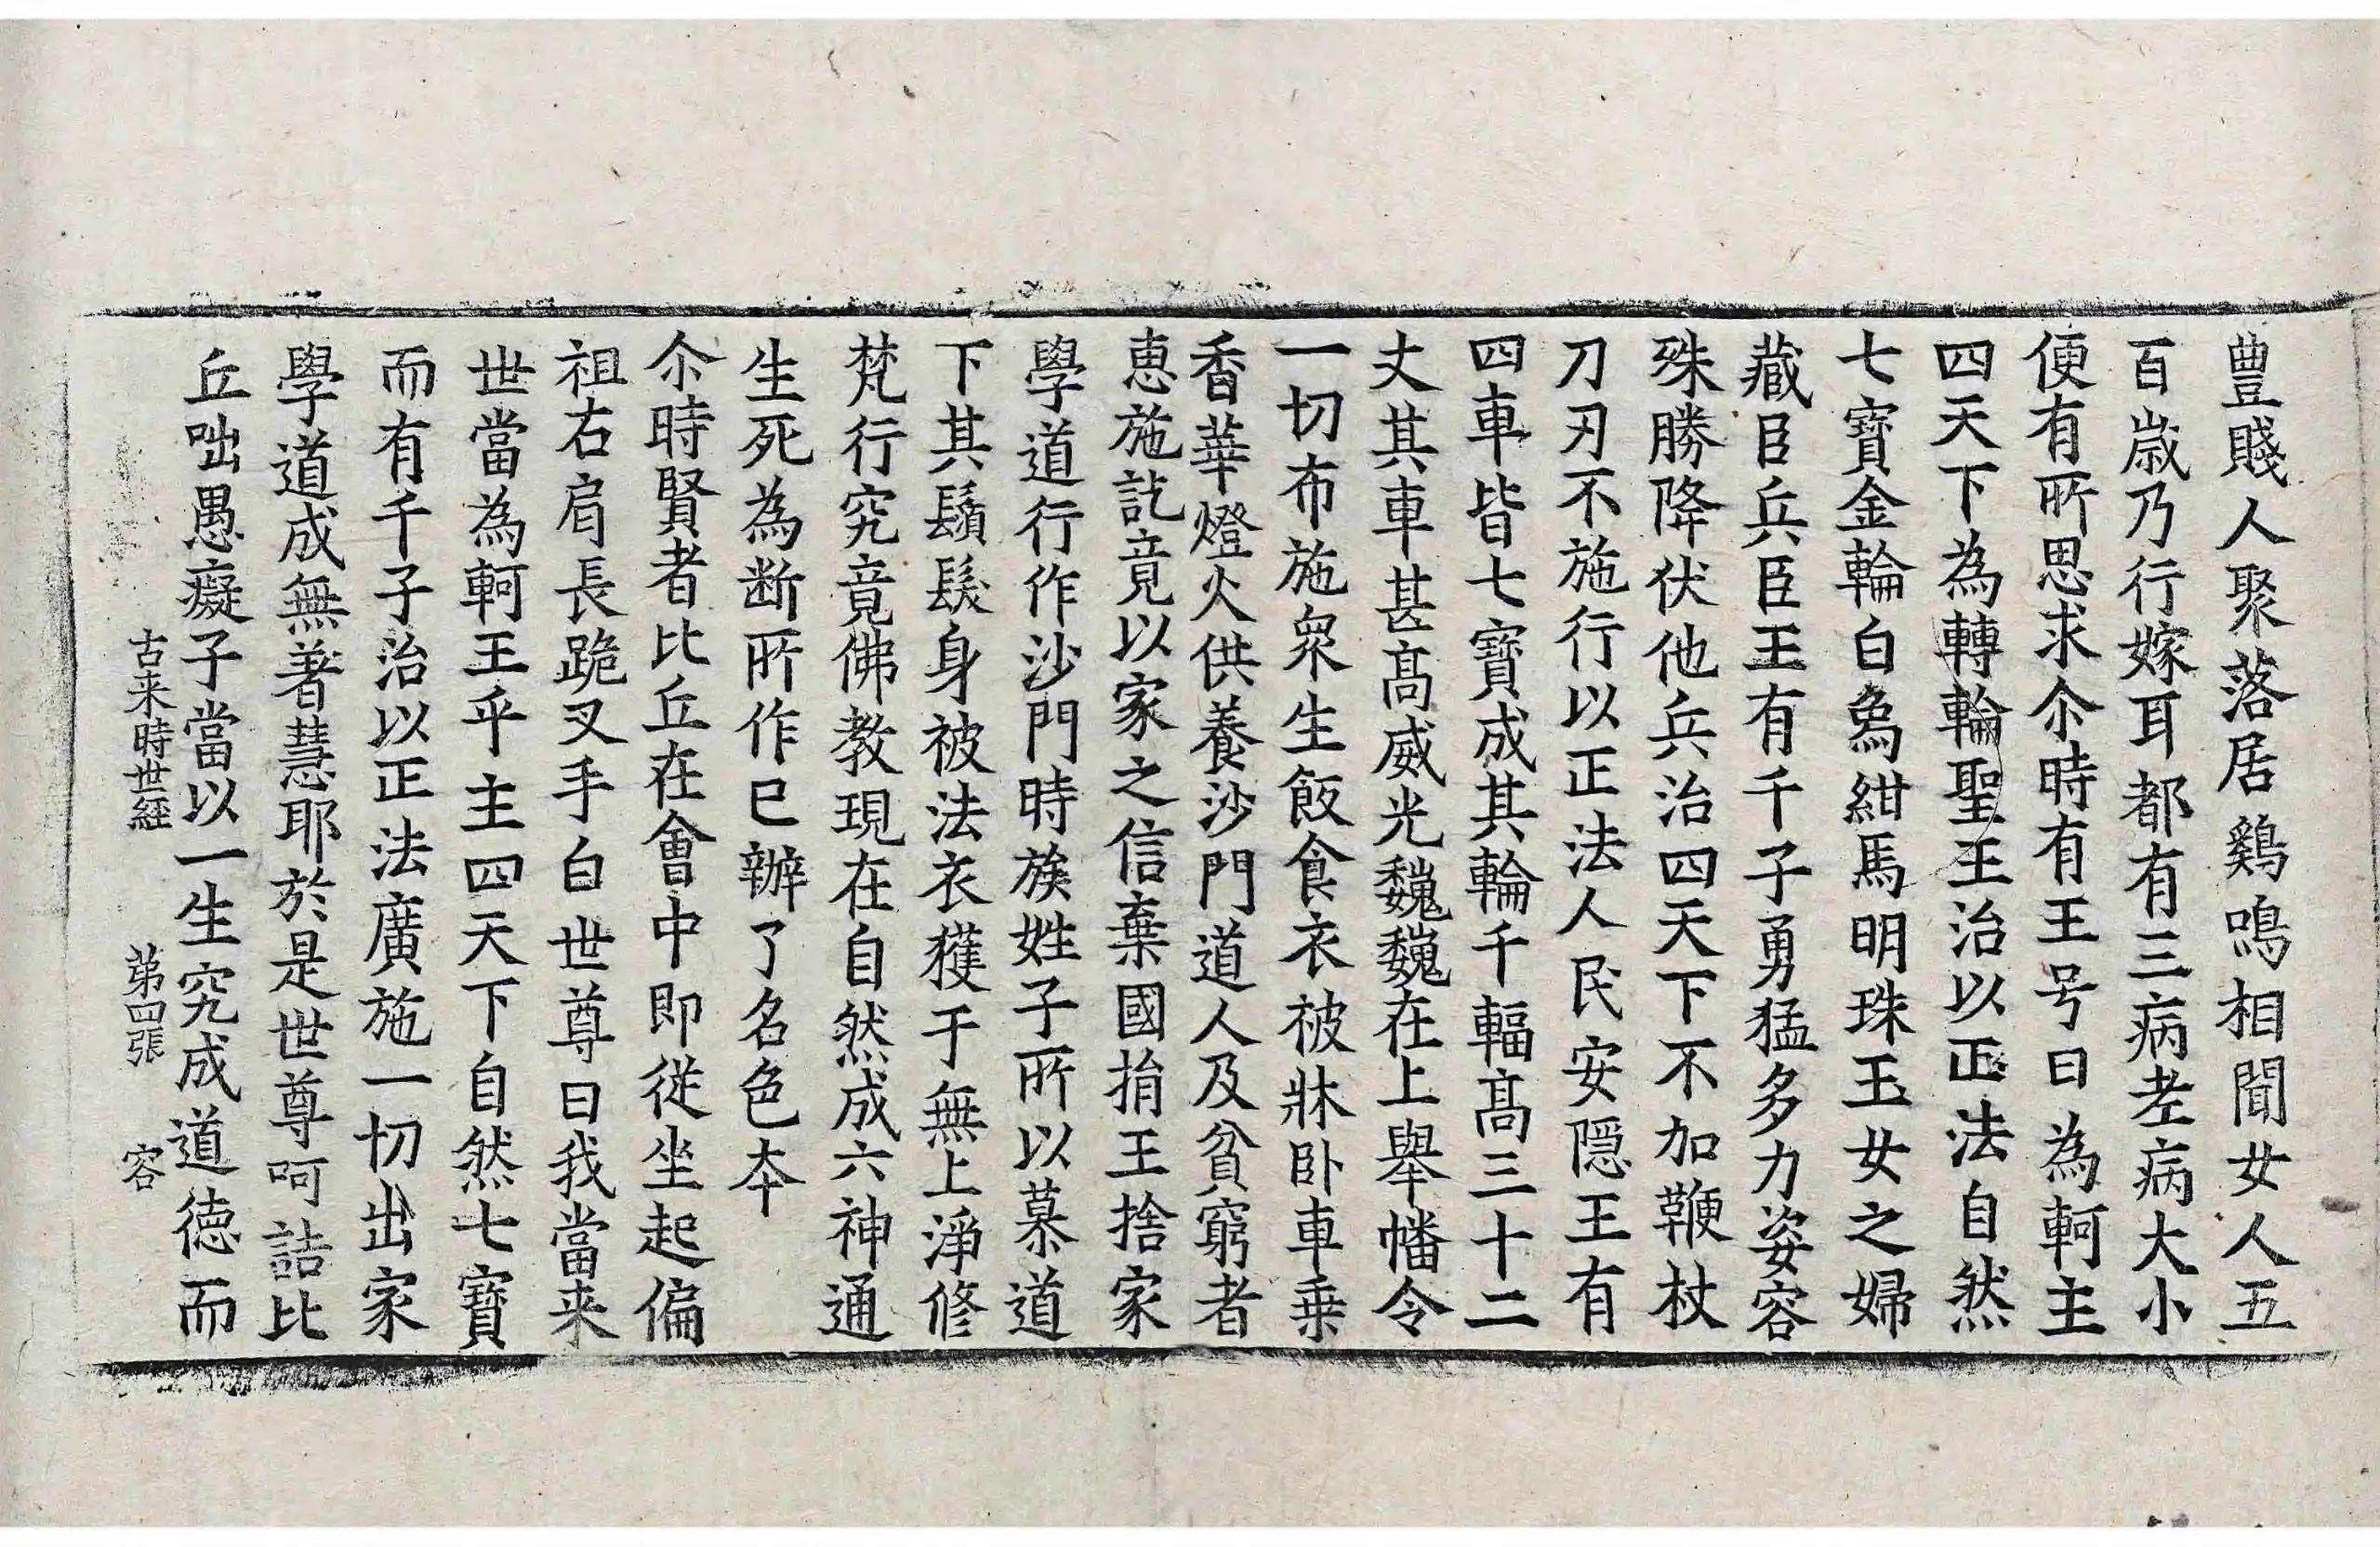 豊賤人聚落居鷄鳴相聞女人五
百歲乃行嫁耳都有三病老病大小
便有所思求尒時有王号曰為軻主
四天下為轉輪聖王治以正法自然
七寶金輪白象紺馬明珠玉女之婦
藏臣兵臣王有千子勇猛多力姿容
殊勝降伏他兵治四天下不加鞭杖
刀刃不施行以正法人民安隱王有
四車皆七寶成其輪千輻高三十二
丈其車甚高威光巍巍在上舉幡令
一切布施衆生飯食衣被牀卧車乗
香華燈火供養沙門道人及貧窮者
惠施訖竟以家之信棄國捐王捨家
學道行作沙門時族姓子所以慕道
下其鬚髮身被法衣獲于無上淨修
梵行究竟佛教現在自然成六神通
生死為断所作已辦了名色本
尒時賢者比丘在會中即從坐起偏
袒右肩長跪叉手白世尊曰我當来
世當為軻王乎主四天下自然七寶
而有千子治以正法廣施一切出家
學道成無著慧耶於是世尊呵詰比
丘咄愚癡子當以一生究成道德而
古来時世經 第四張 容